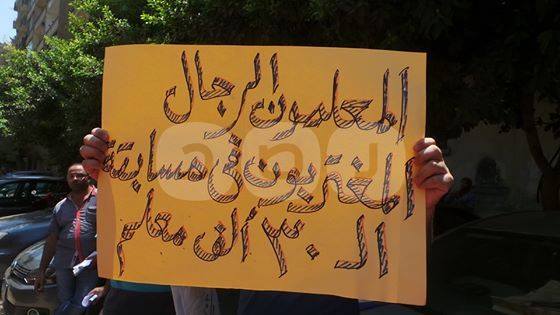 المعلمون الرجال
المغتربون في مسابقة
الـ ٣٠ ألف معلم